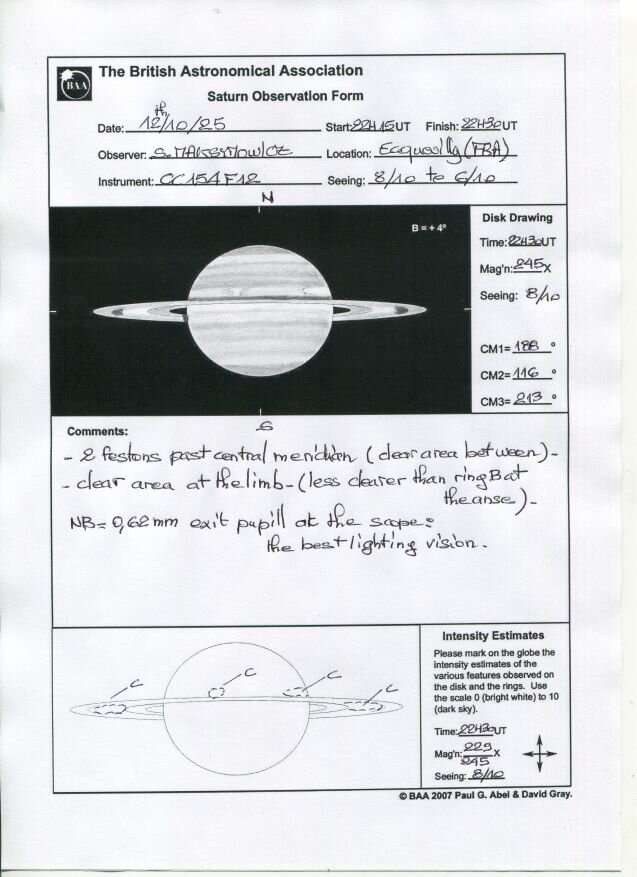 BAA
The British Astronomical Association
Saturn Observation Form
Date: 12th/10/25 Start: 22H15UT Finish: 22H30UT
Observer: S. MAKSYMOWICZ Location: Ecquevilly (FRA)
Instrument: CC154F12 Seeing: 8/10 to 6/10
N
B = + 4º
S
Disk Drawing
Time: 22H30UT
Mag'n: 245X
Seeing: 8/10
CM1= 188 º
CM2= 116 º
CM3= 213 º
Comments:
- 2 festons past central meridian (clear area between) -
- clear area at the limb - (less clearer than ring B at
the anse) -
NB = 0,62mm exit pupill at the scope:
the best lighting vision.
C C C C
Intensity Estimates
Please mark on the globe the
intensity estimates of the
various features observed on
the disk and the rings. Use
the scale 0 (bright white) to 10
(dark sky).
Time: 22H30UT
Mag'n: 229 X
245
Seeing: 8/10
© BAA 2007 Paul G. Abel & David Gray.